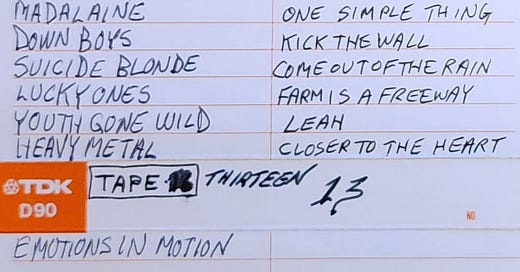 MADALAINE
DOWN BOYS
SUICIDE BLONDE
LUCKY ONES
YOUTH GONE WILD
HEAVY METAL
ONE SIMPLE THING
KICK THE WALL
COME OUT OF THE RAIN
FARM IS A FREEWAY
LEAH
CLOSER TO THE HEART
TDK
D90
TAPE THIRTEEN 13
NO.
EMOTIONS IN MOTION